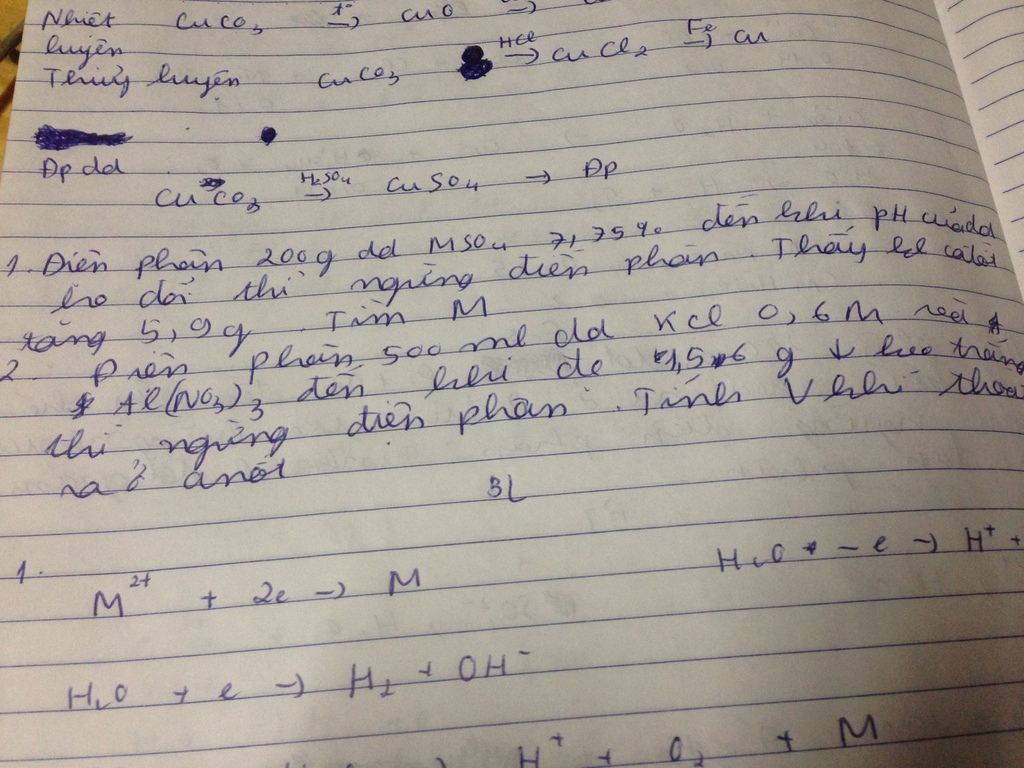 Nhiệt CuCO3 t° → CuO →
luyện
Thủy luyện CuCO3 HCl → CuCl2 Fe → Cu
Đp dd
CuCO3 H2SO4 → CuSO4 → Đp
1. Điện phân 200g dd MSO4 7,75% đến khi pH của dd
ko đổi thì ngừng điện phân. Thấy kl catot
tăng 5,9g. Tìm M
2. Điện phân 500 ml dd KCl 0,6M
Al(NO3)3 đến khi để g ↓ keo trắng
thì ngừng điện phân. Tính V khí thoát
ra ở anot
3L
1. M2+ + 2e → M H2O - e → H+ +
H2O + e → H2 + OH-
→ H+ + O2 + M